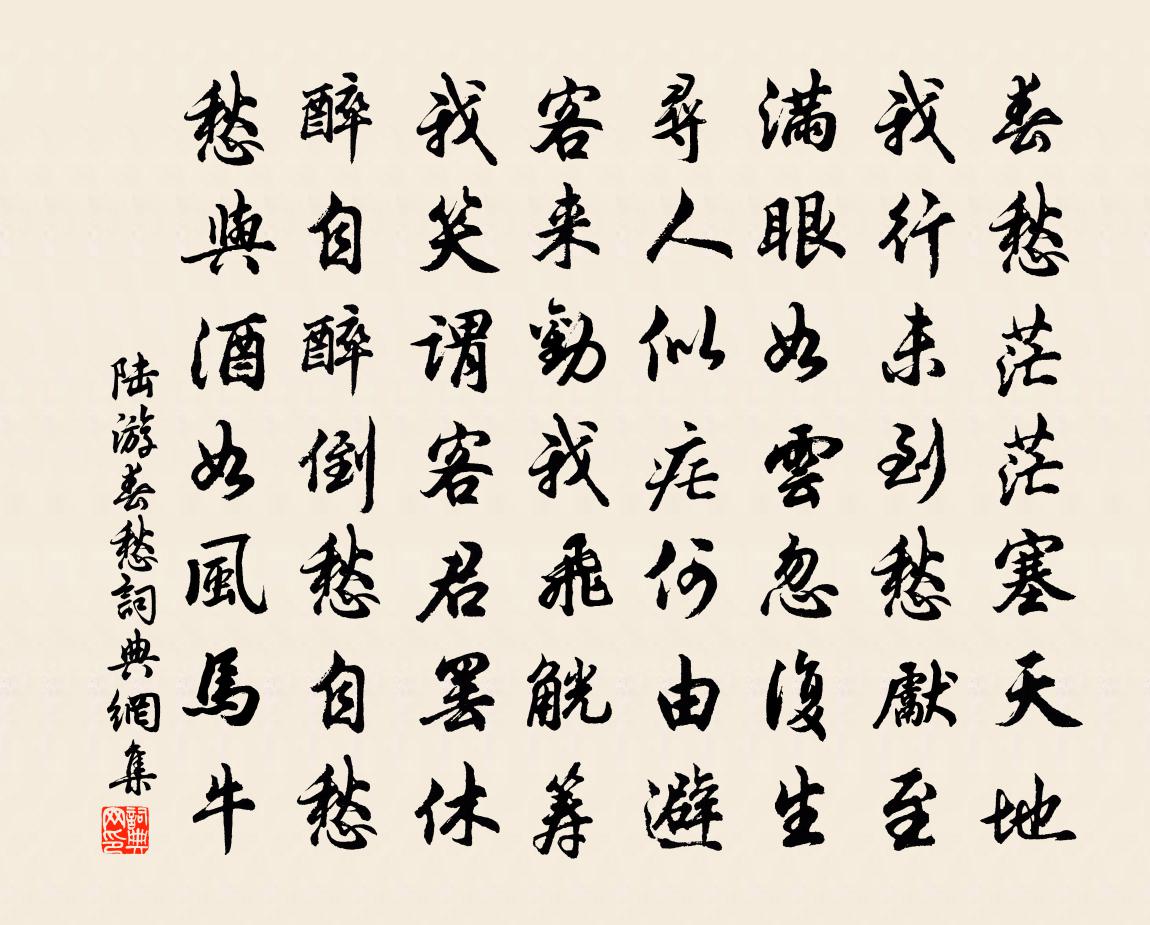 春愁茫茫塞天地
我行未到愁獻至
滿眼如雲忽復生
尋人似疟何由避
客来勸我飛觥筹
我笑謂客君罢休
醉自醉倒愁自愁
愁與酒如風馬牛
陆游春愁詞典網集
詞典
网印